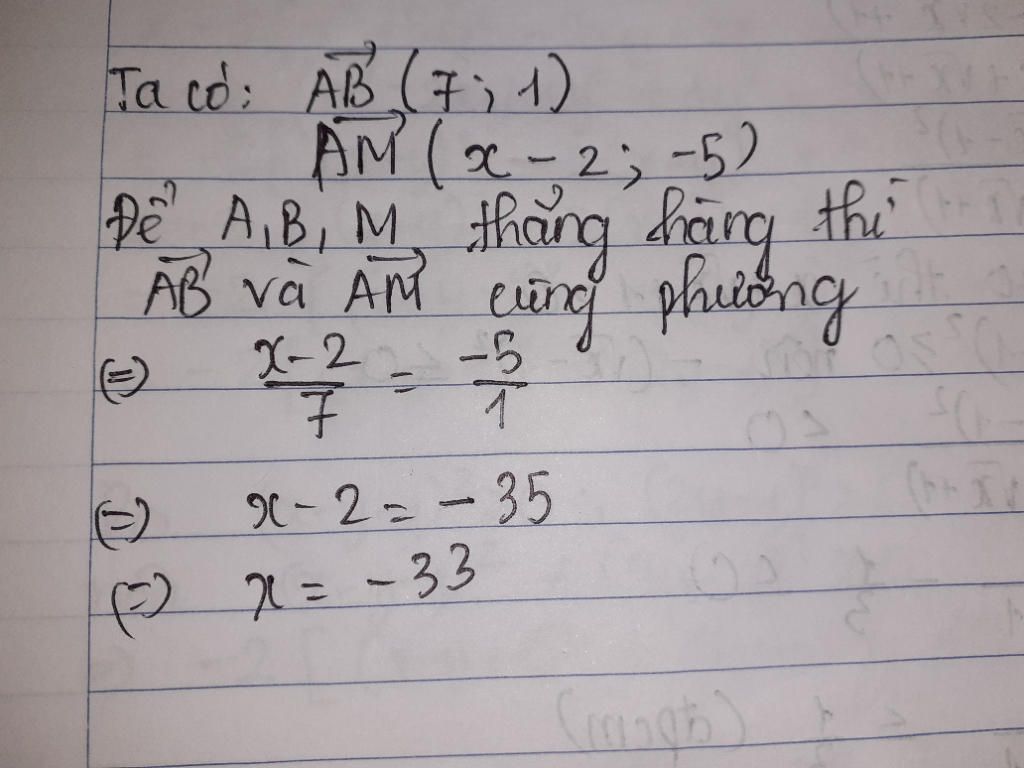 Ta có: AB⃗ (7; 1)
AM⃗ (x - 2; -5)
Để A, B, M thẳng hàng thì
AB⃗ và AM⃗ cùng phương
(=) x-2/7 = -5/1
(=) x - 2 = - 35
(=) x = - 33